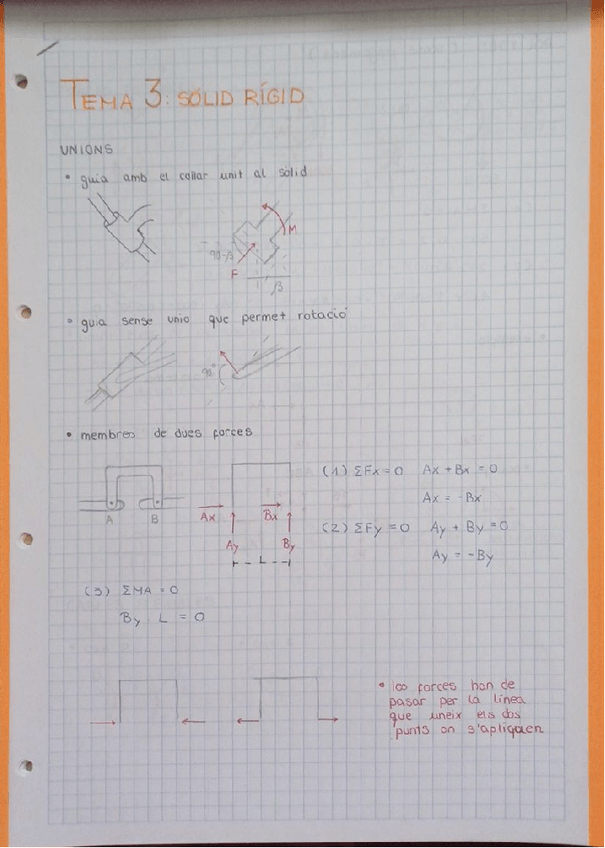 TEMA 3: SÒLID RÍGID
UNIONS
• guia amb el collar unit al sòlid
M
90-β
F
β
• guia sense unio que permet rotació
90°
• membres de dues forces
A B
Ax
Bx
Ay
By
L
(1) ΣFx = 0 Ax + Bx = 0
Ax = -Bx
(2) ΣFy = 0 Ay + By = 0
Ay = -By
(3) ΣMA = 0
By L = 0
forces han de
pasar per la línea
que uneix els dos
punts on s'apliquen